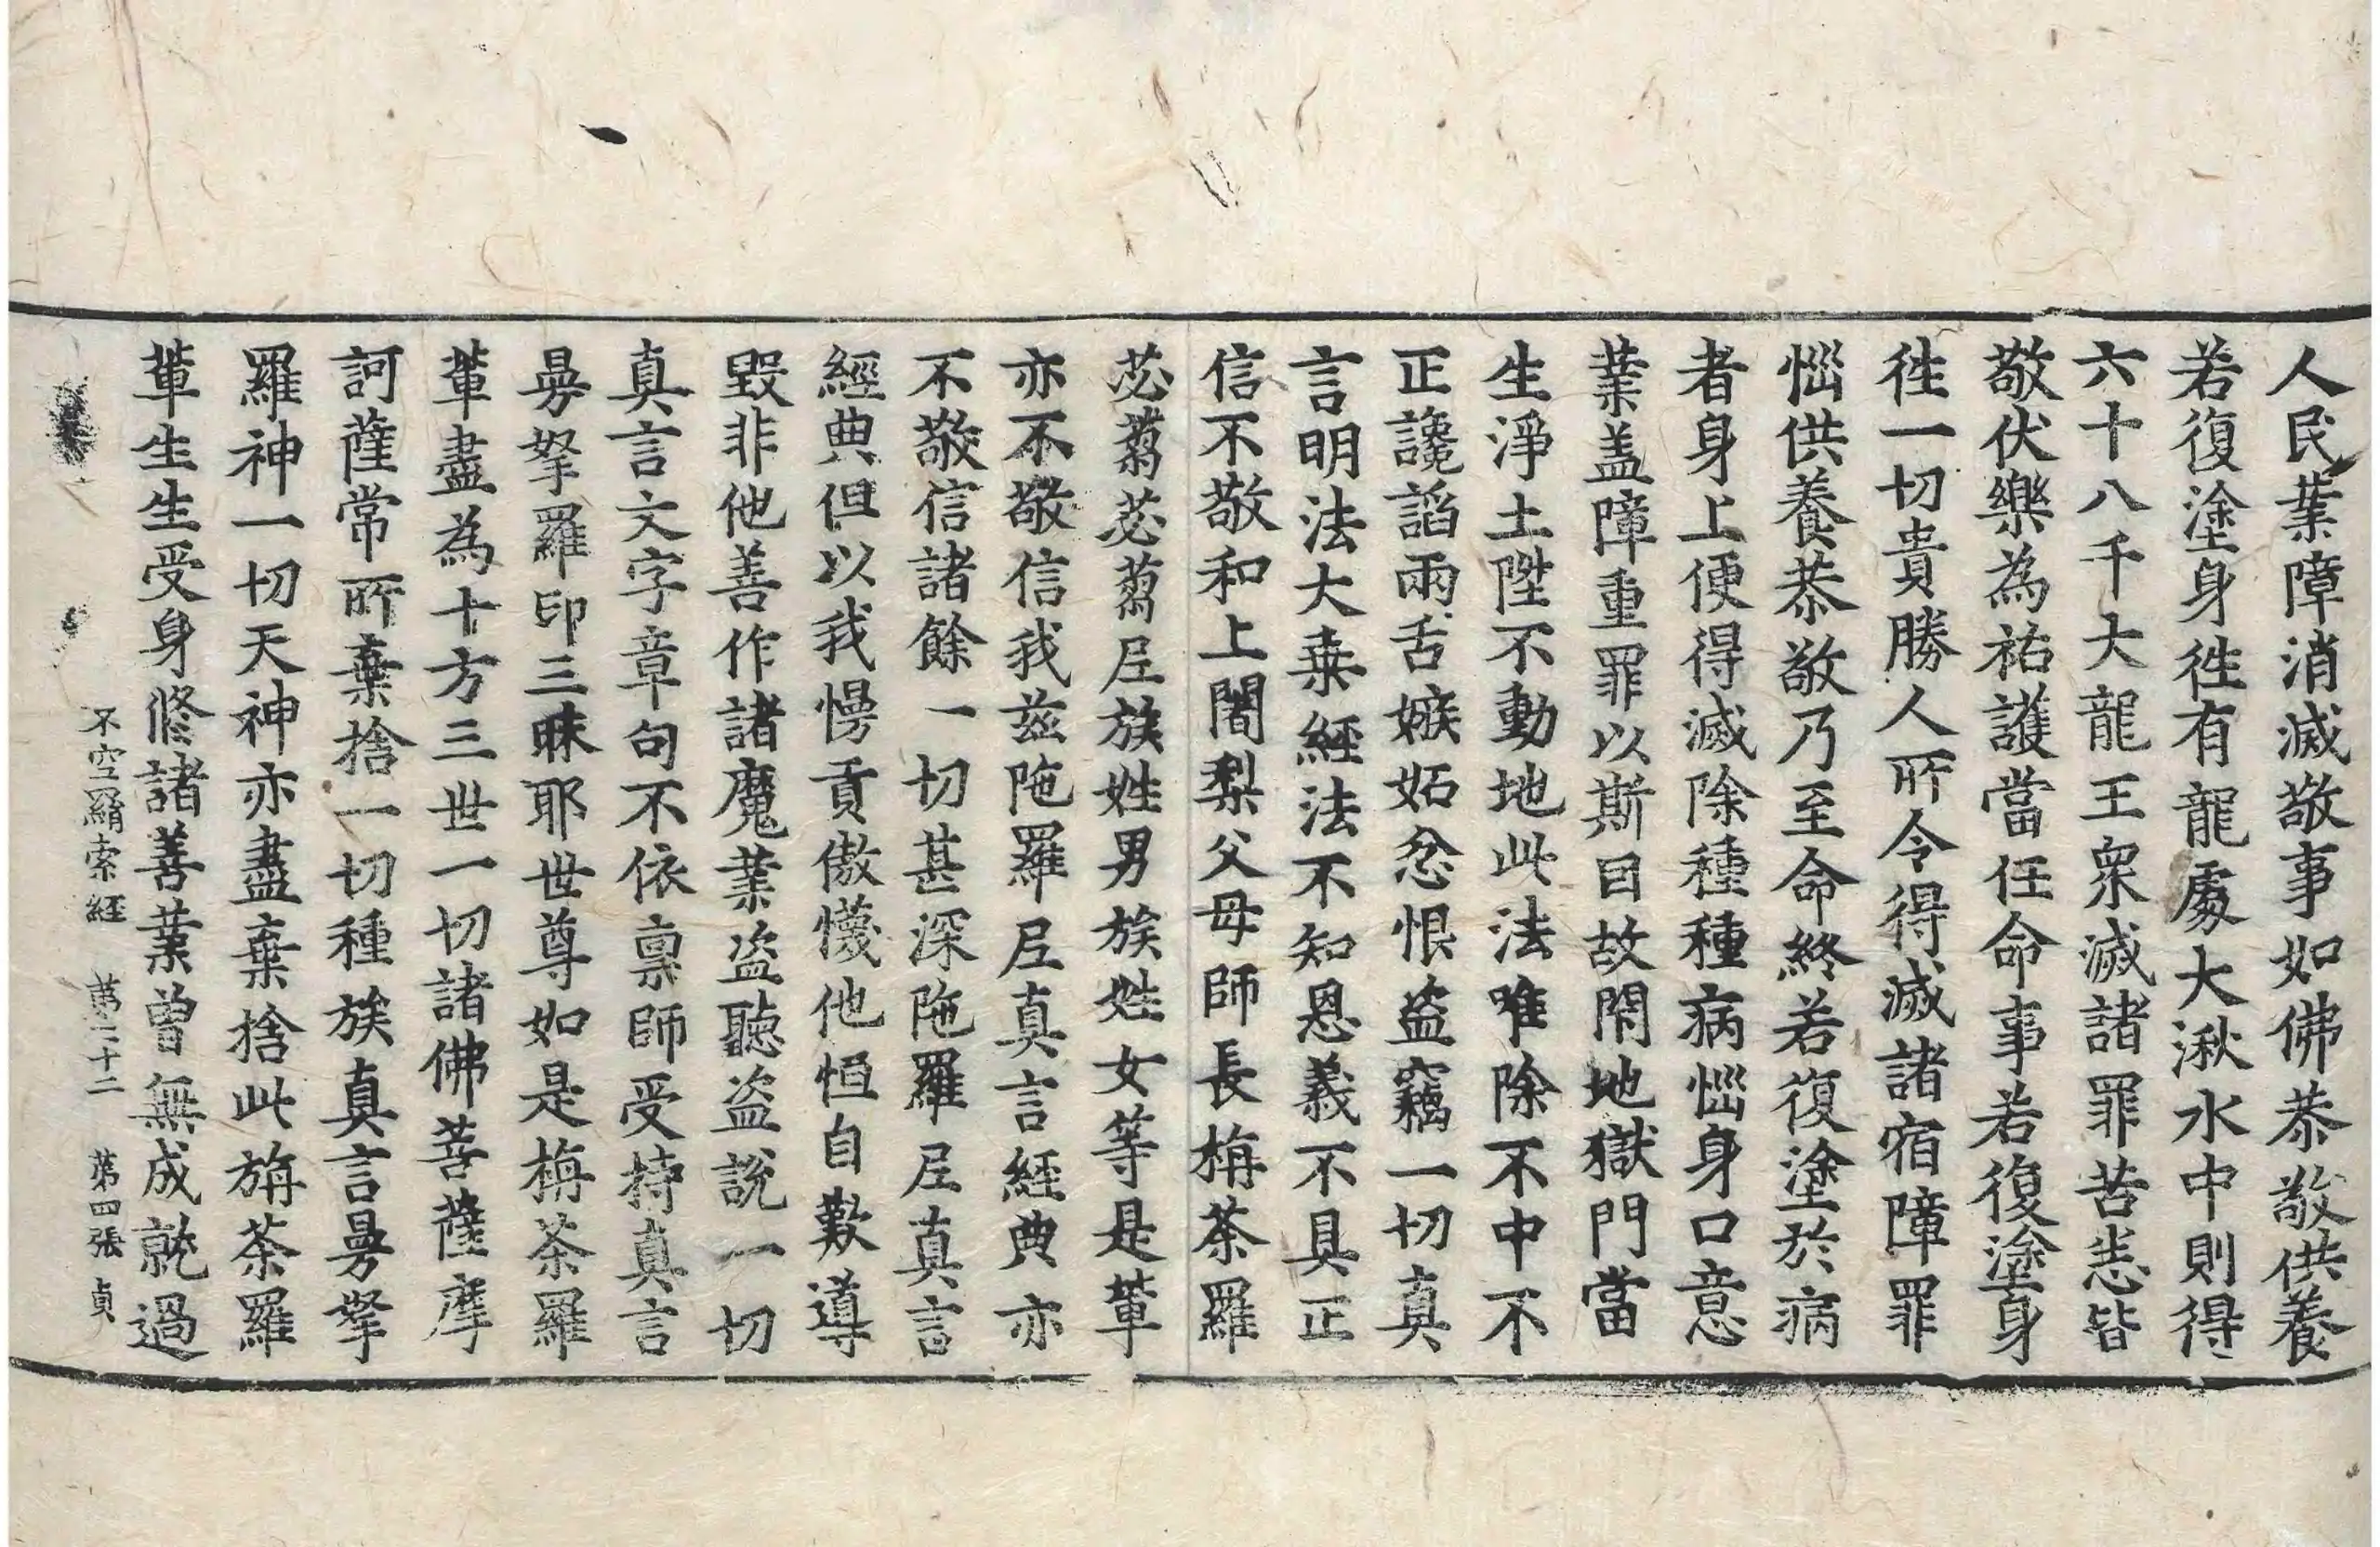 人民業障消滅敬事如佛恭敬供養
若復塗身徃有龍處大湫水中則得
六十八千大龍王衆滅諸罪苦恙皆
敬伏樂為祐護當任命事若復塗身
徃一切貴勝人所令得滅諸宿障罪
惱供養恭敬乃至命終若復塗於病
者身上便得滅除種種病惱身口意
業盖障重罪以斯因故閇地獄門當
生淨土陞不動地此法唯除不中不
正讒謟兩舌嫉妬忿恨盗竊一切真
言明法大乗經法不知恩義不具正
信不敬和上闍梨父母師長旃荼羅
苾蒭苾蒭尼族姓男族姓女等是輩
亦不敬信我兹陁羅尼真言經典亦
不敬信諸餘一切甚深陁羅尼真言
經典但以我慢貢傲懱他恒自歎導
毀非他善作諸魔業盗聽盗說一切
真言文字章句不依禀師受持真言
曼拏羅印三昧耶世尊如是旃荼羅
輩盡為十方三世一切諸佛菩薩摩
訶薩常所棄捨一切種族真言曼拏
羅神一切天神亦盡棄捨此旃荼羅
輩生生受身修諸善業曾無成就過
不空羂索經 第二十二 第四張 貞